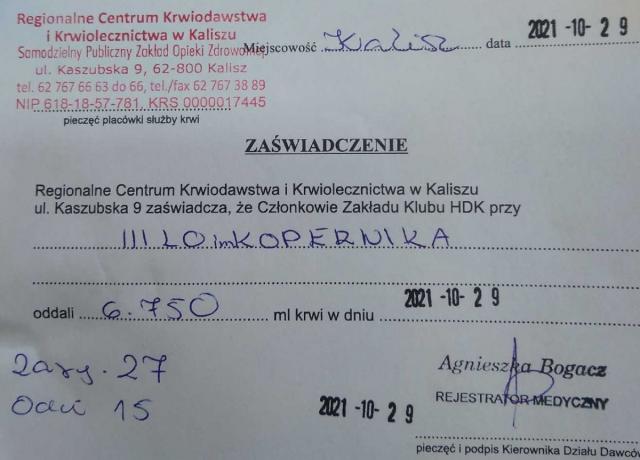 Regionalne Centrum Krwiodawstwa
i Krwiolecznictwa w Kaliszu
Samodzielny Publiczny Zakład Opieki Zdrowotnej
ul. Kaszubska 9, 62-800 Kalisz
tel. 62 767 66 63 do 66, tel./fax 62 767 38 89
NIP 618-18-57-781, KRS 0000017445
pieczęć placówki służby krwi
Miejscowość Kalisz data 2021 -10- 29
ZAŚWIADCZENIE
Regionalne Centrum Krwiodawstwa i Krwiolecznictwa w Kaliszu
ul. Kaszubska 9 zaświadcza, że Członkowie Zakładu Klubu HDK przy
III LO im KOPERNIKA
oddali 6.750 ml krwi w dniu 2021 -10- 29
Zarej. 27
Odd 15
2021 -10- 29
Agnieszka Bogacz
REJESTRATOR MEDYCZNY
pieczęć i podpis Kierownika Działu Dawców